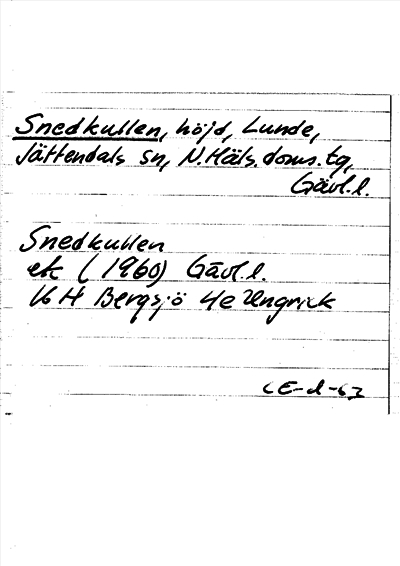 Snedkullen, höjd, Lunde,
Jättendals sn, N. Häls. doms. tg,
Gävl. l.
Snedkullen
ek (1960) Gävl. l.
16 H Bergsjö 4e Ungrick